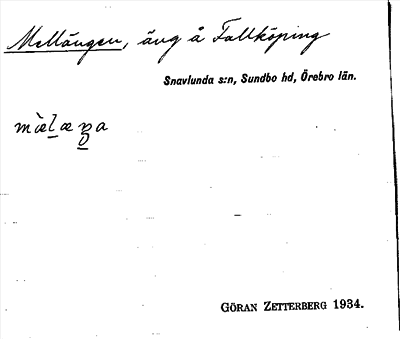 Mellängen, äng å Fallköping
Snavlunda s:n, Sundbo hd, Örebro län.
GÖRAN ZETTERBERG 1934.